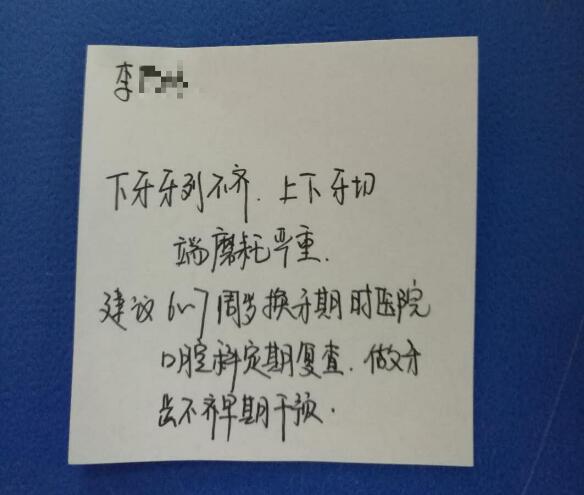 李
下牙牙列不齐.上下牙切
端磨耗严重.
建议6~7周岁换牙期时医院
口腔科定期复查.做牙
齿不齐早期干预.